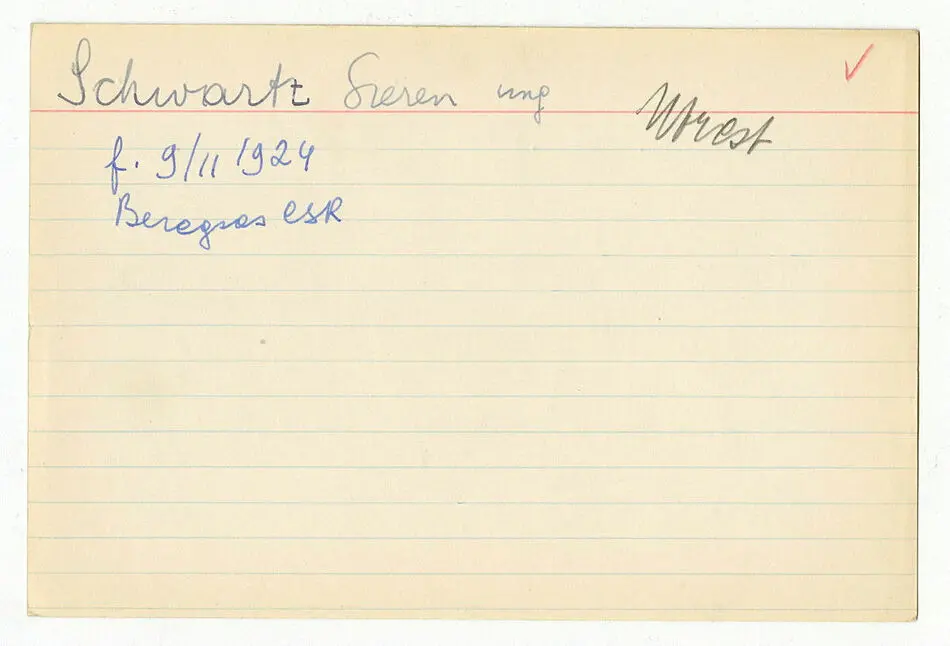 Schwartz Sieren ung
Utrest
f. 9/11 1924
Beregsas CSR